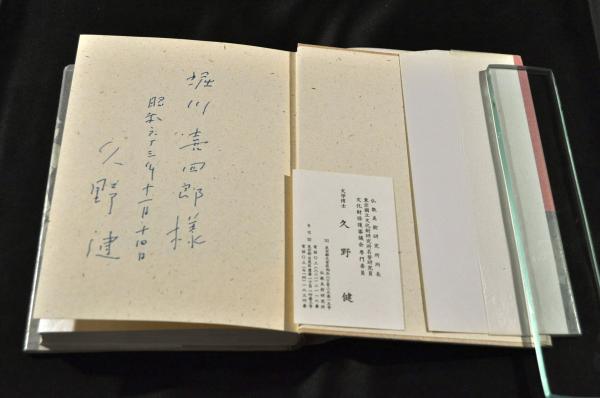 堀川喜四郎様
昭和六十三年十一月十四日
久野健
仏教美術研究所所長
東京国立文化財研究所名誉研究員
文化財保護審議会専門委員
文学博士 久野健